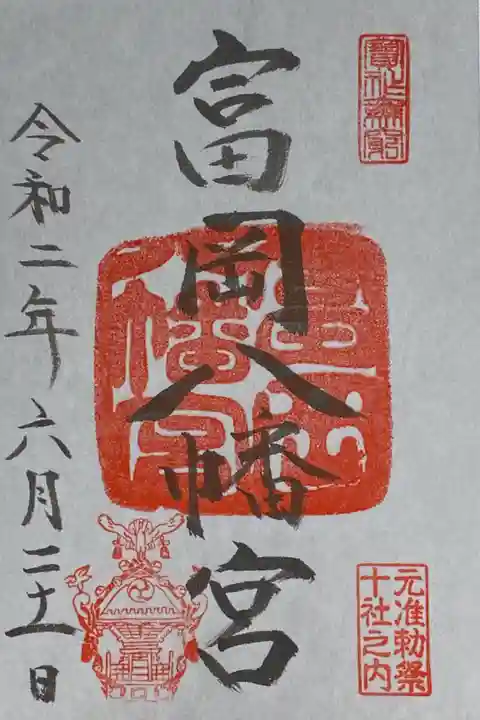 寶祚無窮
元准勅祭
十社之内
富岡八幡宮
令和二年六月二十一日